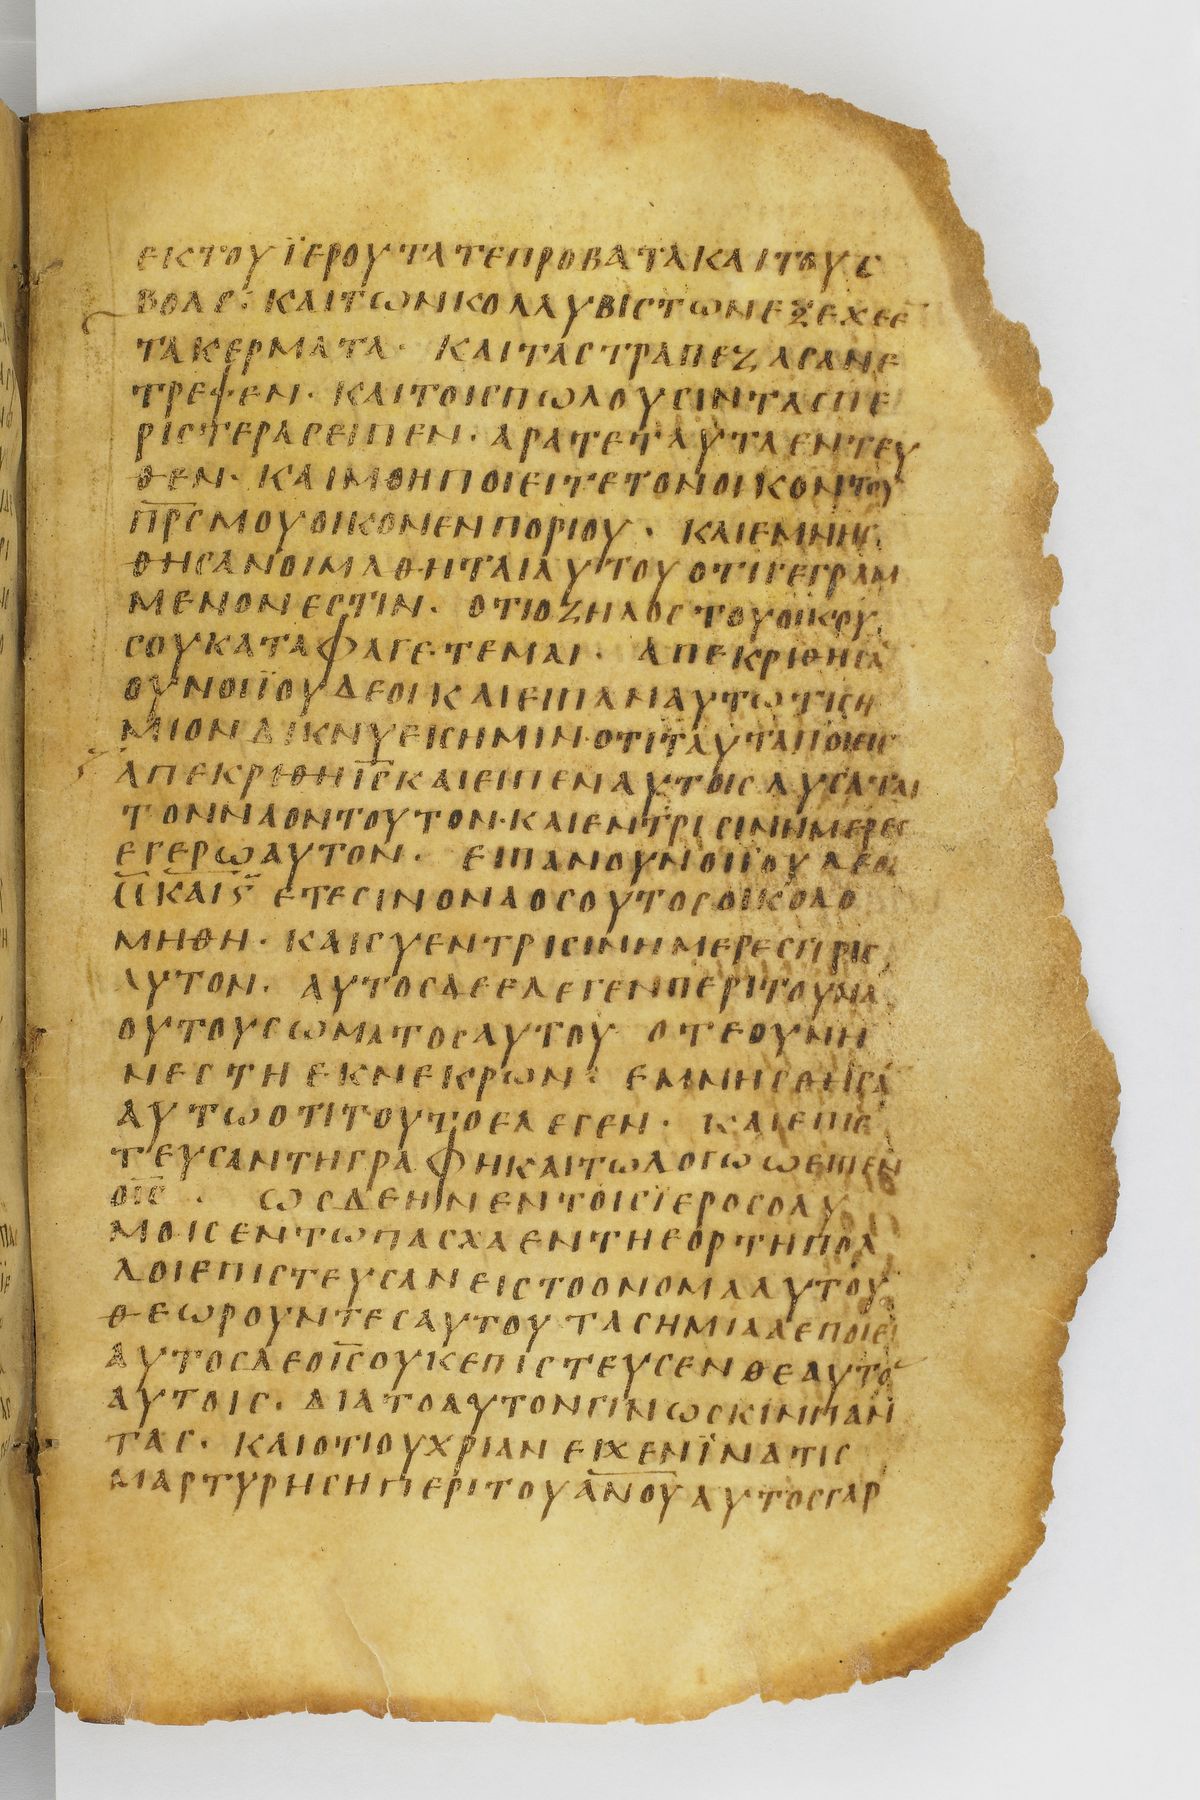 ΕΚΤΟΥΪΕΡΟΥΤΑΤΕΠΡΟΒΑΤΑΚΑΙΤΟΥΣ
ΒΟΑΣ· ΚΑΙΤΩΝΚΟΛΛΥΒΙΣΤΩΝΕΞΕΧΕΕ
ΤΑΚΕΡΜΑΤΑ· ΚΑΙΤΑΣΤΡΑΠΕΖΑΣΑΝΕ
ΤΡΕΨΕΝ· ΚΑΙΤΟΙΣΠΩΛΟΥΣΙΝΤΑΣΠΕ
ΡΙΣΤΕΡΑΣΕΙΠΕΝ· ΑΡΑΤΕΤΑΥΤΑΕΝΤΕΥ
ΘΕΝ· ΚΑΙΜΘΗΠΟΙΕΙΤΕΤΟΝΟΙΚΟΝΤΟΥ
Π̅Ρ̅Σ̅ΜΟΥΟΙΚΟΝΕΝΠΟΡΙΟΥ· ΚΑΙΕΜΝΗΣ
ΘΗΣΑΝΟΙΜΑΘΗΤΑΙΑΥΤΟΥΟΤΙΓΕΓΡΑΜ
ΜΕΝΟΝΕΣΤΙΝ· ΟΤΙΟΖΗΛΟΣΤΟΥΟΙΚΟΥ
ΣΟΥΚΑΤΑΦΑΓΕΤΕΜΑΙ· ΑΠΕΚΡΙΘΗΣΑ
ΟΥΝΟΙΪΟΥΔΕΟΙΚΑΙΕΙΠΑΝΑΥΤΩΤΙΣΗ
ΜΙΟΝΔΙΚΝΥΕΙΣΗΜΙΝ·ΟΤΙΤΑΥΤΑΠΟΙΕΙΣ
ΑΠΕΚΡΙΘΗΙ̅Σ̅ΚΑΙΕΙΠΕΝΑΥΤΟΙΣΛΥΣΑΤΑΙ
ΤΟΝΝΑΟΝΤΟΥΤΟΝ·ΚΑΙΕΝΤΡΙΣΙΝΗΜΕΡΕΣ
ΕΓΕΡΩΑΥΤΟΝ· ΕΙΠΑΝΟΥΝΟΙΪΟΥΔΕΟΙ
ΚΑΙϚ̅ ΕΤΕΣΙΝΟΝΑΟΣΟΥΤΟΣΟΙΚΟΔΟ
ΜΗΘΗ· ΚΑΙΣΥΕΝΤΡΙΣΙΝΗΜΕΡΕΣΕΓΙΡΙΣ
ΑΥΤΟΝ· ΑΥΤΟΣΔΕΕΛΕΓΕΝΠΕΡΙΤΟΥΝΑ
ΟΥΤΟΥΣΩΜΑΤΟΣΑΥΤΟΥ ΟΤΕΟΥΝΗ
ΝΕΣΤΗΕΚΝΕΚΡΩΝ· ΕΜΝΗΣΘΗΣΑ
ΑΥΤΩΟΤΙΤΟΥΤΟΕΛΕΓΕΝ· ΚΑΙΕΠΙΣ
ΤΕΥΣΑΝΤΗΓΡΑΦΗΚΑΙΤΩΛΟΓΩΩΕΙΠΕΝ
ΟΙ̅Σ̅ · ΩΣΔΕΗΝΕΝΤΟΙΣΪΕΡΟΣΟΛΥ
ΜΟΙΣΕΝΤΩΠΑΣΧΑΕΝΤΗΕΟΡΤΗΠΟΛ
ΛΟΙΕΠΙΣΤΕΥΣΑΝΕΙΣΤΟΟΝΟΜΑΑΥΤΟΥ
ΘΕΩΡΟΥΝΤΕΣΑΥΤΟΥΤΑΣΗΜΙΑΑΕΠΟΙΕΙ
ΑΥΤΟΣΔΕΟΙ̅Σ̅ΟΥΚΕΠΙΣΤΕΥΣΕΝΘΕΑΥΤΟ
ΑΥΤΟΙΣ· ΔΙΑΤΟΑΥΤΟΝΓΙΝΩΣΚΙΝΠΑΝ
ΤΑΣ· ΚΑΙΟΤΙΟΥΧΡΙΑΝΕΙΧΕΝΪΝΑΤΙΣ
ΜΑΡΤΥΡΗΣΗΠΕΡΙΤΟΥΑ̅Ν̅Ο̅Υ̅ΑΥΤΟΣΓΑΡ